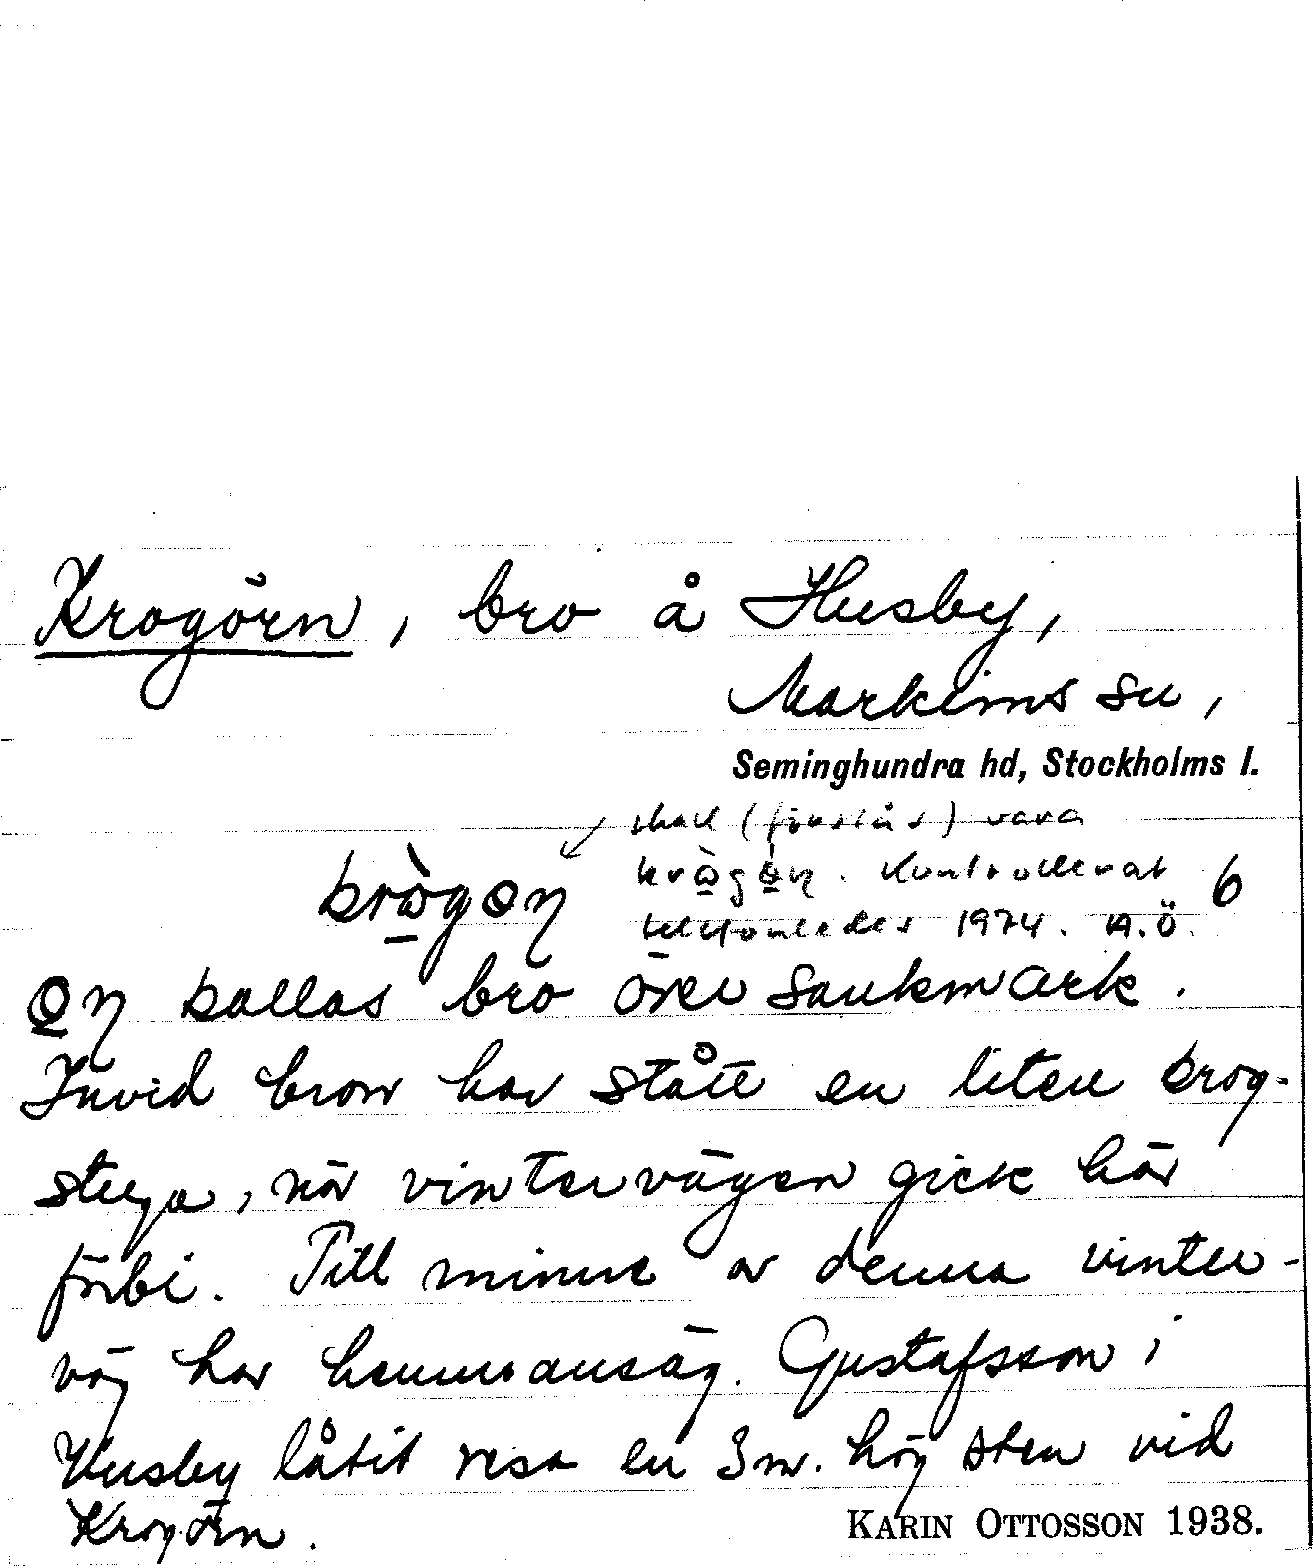 Krogörn, bro å Husby,
Markims sn,
Seminghundra hd, Stockholms l.
skall (förstås) vara
. Kontrollerat
telefonledes 1974. A.Ö.
6
kallas bro över sankmark.
Invid bron har stått en liten krog-
stuga, när vintervägen gick här
förbi. Till minne av denna vinter-
väg har hemmansäg. Gustafsson i
Husby låtit resa en 3 m. hög sten vid
Krogörn.
KARIN OTTOSSON 1938.